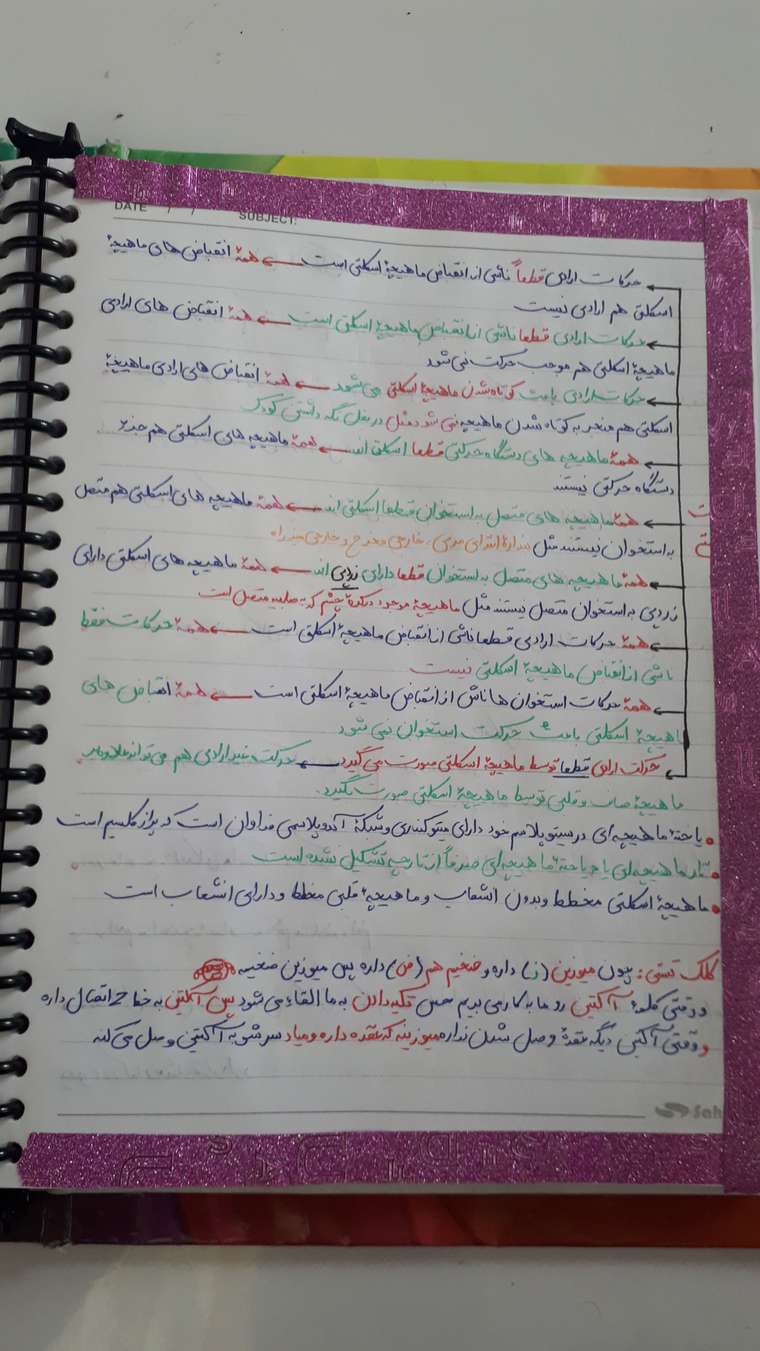 DATE / / SUBJECT:
حرکات ارادی قطعاً ناشی از انقباض ماهیچهٔ اسکلتی است ← همهٔ انقباض های ماهیچهٔ
اسکلتی هم ارادی نیست
حرکات ارادی قطعا ناشی از انقباض ماهیچهٔ اسکلتی است ← همهٔ انقباض های ارادی
ماهیچهٔ اسکلتی هم موجب حرکت نمی شود
حرکات ارادی باعث کوتاه شدن ماهیچهٔ اسکلتی می شود ← همهٔ انقباض های ارادی ماهیچهٔ
اسکلتی هم منجر به کوتاه شدن ماهیچه نمی شود مثل در بغل نگه داشتن کودک
همهٔ ماهیچه های دستگاه حرکتی قطعا اسکلتی اند ← همهٔ ماهیچه های اسکلتی هم جزء
دستگاه حرکتی نیستند
همهٔ ماهیچه های متصل به استخوان قطعا اسکلتی اند ← همهٔ ماهیچه های اسکلتی هم متصل
به استخوان نیستند مثل بندارهٔ ابتدای مری، خارجی مخرج و خارجی میزراه
همهٔ ماهیچه های متصل به استخوان قطعا دارای زردپی اند ← همهٔ ماهیچه های اسکلتی دارای
زردپی به استخوان متصل نیستند مثل ماهیچهٔ موجود در کرهٔ چشم که به صلبیه متصل است
همهٔ حرکات ارادی قطعا ناشی از انقباض ماهیچهٔ اسکلتی است ← همهٔ حرکات فقط
ناشی از انقباض ماهیچهٔ اسکلتی نیست
همهٔ حرکات استخوان ها ناشی از انقباض ماهیچهٔ اسکلتی است ← همهٔ انقباض های
ماهیچهٔ اسکلتی باعث حرکت استخوان نمی شود
حرکت ارادی قطعا توسط ماهیچهٔ اسکلتی صورت می گیرد ← حرکت غیر ارادی هم می تواند علاوه بر
ماهیچهٔ صاف و قلبی توسط ماهیچهٔ اسکلتی صورت بگیرد.
• یاختهٔ ماهیچه ای در سیتوپلاسم خود دارای میتوکندری و شبکهٔ آندوپلاسمی فراوان است که پر از کلسیم است
• تار ماهیچه ای یا یاختهٔ ماهیچه ای صرفاً از تارچه تشکیل نشده است
• ماهیچهٔ اسکلتی مخطط و بدون انشعاب و ماهیچهٔ قلبی مخطط و دارای انشعاب است
کلک تستی: چون میوزین (ز) داره و ضخیم هم (ض) داره پس میوزین ضخیمه
و وقتی کلمهٔ آکتین رو ما به کار می بریم حس تکیه دادن به ما القاء می شود پس آکتین به خط Z اتصال داره
و وقتی آکتین دیگه عقدهٔ وصل شدن نداره میوزینه که عقده داره و میاد سرشو به آکتین وصل می کنه